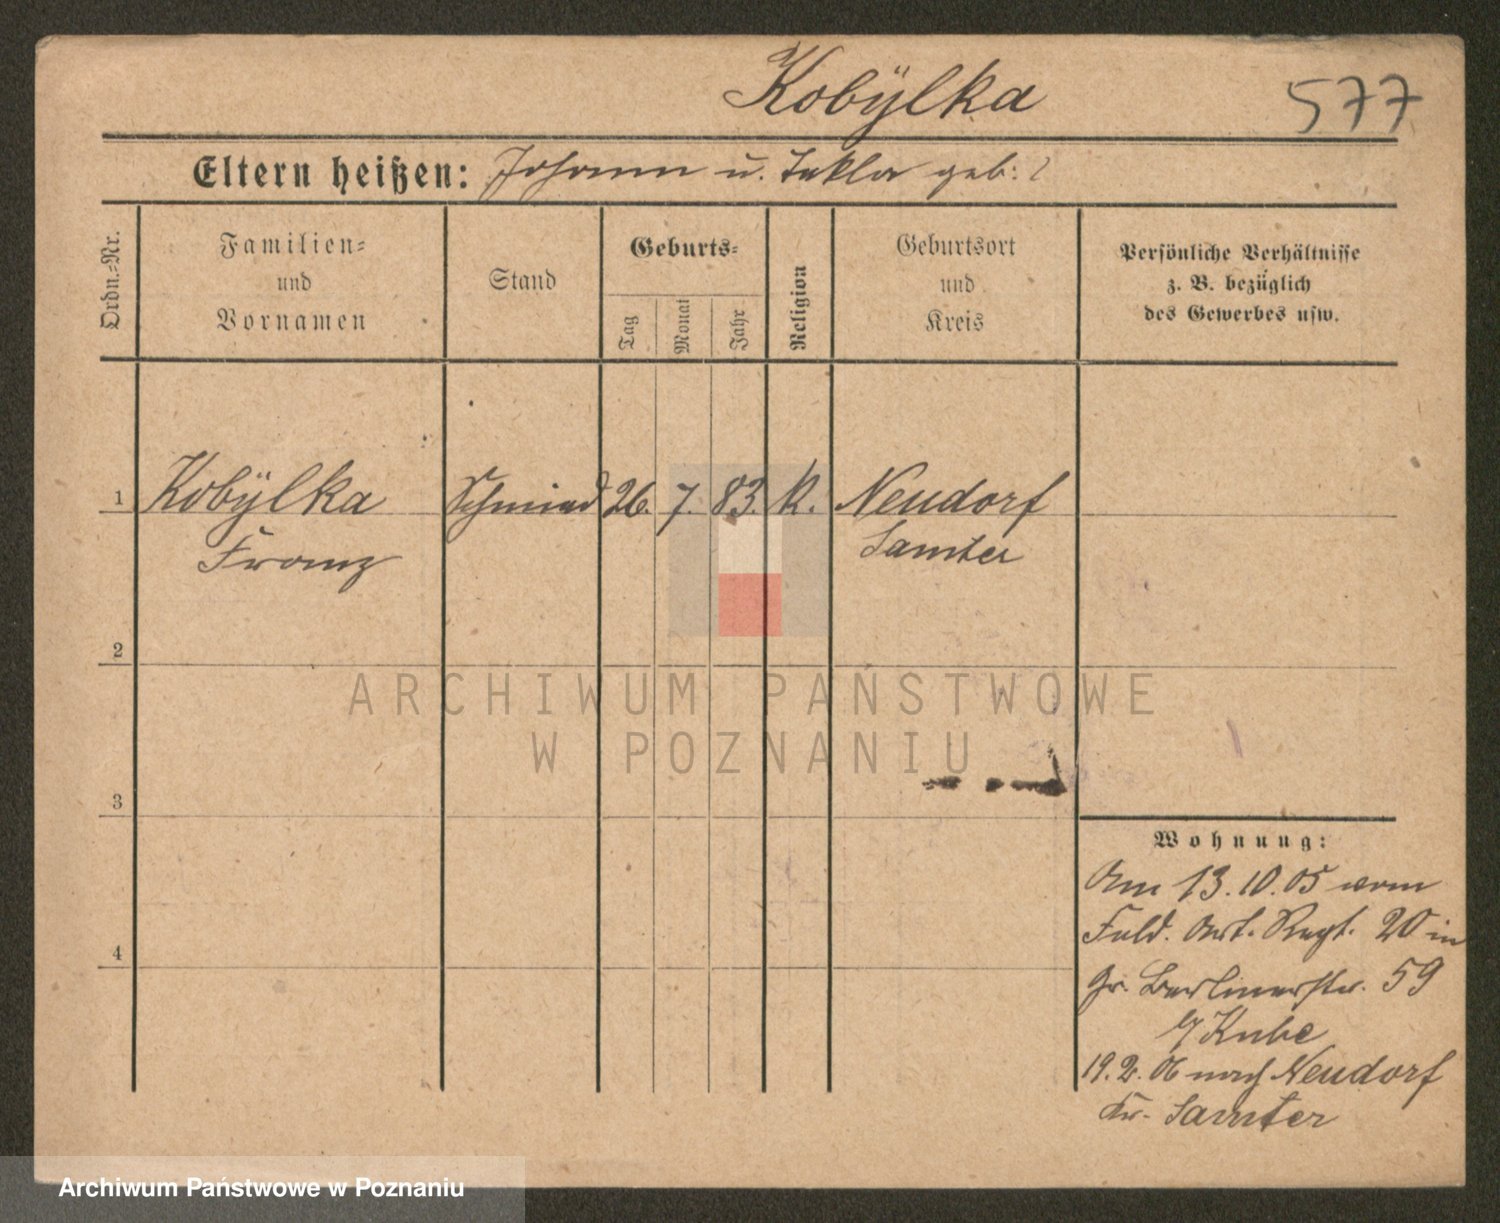 Kobÿlka
577
Eltern heißen: Johann u. Tekla geb: ?
Ordn.=Nr.
Familien=
und
Vornamen
Stand
Geburts=
Tag
Monat
Jahr
Religion
Geburtsort
und
Kreis
Persönliche Verhältnisse
z. B. bezüglich
des Gewerbes usw.
1 Kobÿlka Schmied 26. 7. 83. K. Neudorf
Franz Samter
2
3
4
Wohnung:
Am 13.10.05 vom
Feld. Art. Regt. 20 in
Gr. Berlinerstr. 59
b/ Kube
19.2.06 nach Neudorf
Kr. Samter
ARCHIWUM PAŃSTWOWE
W POZNANIU
Archiwum Państwowe w Poznaniu